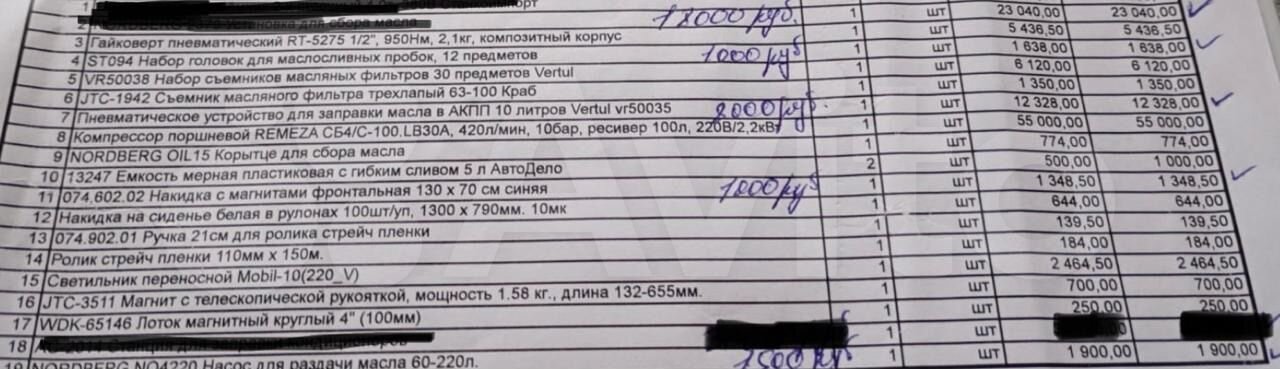 1 Станкоимпорт
2 установка для сбора масла 18000 руб. 1 шт 23 040,00 23 040,00
3 Гайковерт пневматический RT-5275 1/2", 950Нм, 2,1кг, композитный корпус 1 шт 5 436,50 5 436,50
4 ST094 Набор головок для маслосливных пробок, 12 предметов 1000 руб 1 шт 1 638,00 1 638,00
5 VR50038 Набор съемников масляных фильтров 30 предметов Vertul 1 шт 6 120,00 6 120,00
6 JTC-1942 Съемник масляного фильтра трехлапый 63-100 Краб 1 шт 1 350,00 1 350,00
7 Пневматическое устройство для заправки масла в АКПП 10 литров Vertul vr50035 8000 руб. 1 шт 12 328,00 12 328,00
8 Компрессор поршневой REMEZA СБ4/С-100.LB30A, 420л/мин, 10бар, ресивер 100л, 220В/2,2кВт 1 шт 55 000,00 55 000,00
9 NORDBERG OIL15 Корытце для сбора масла 1 шт 774,00 774,00
10 13247 Емкость мерная пластиковая с гибким сливом 5 л АвтоДело 2 шт 500,00 1 000,00
11 074.602.02 Накидка с магнитами фронтальная 130 х 70 см синяя 1000 руб 1 шт 1 348,50 1 348,50
12 Накидка на сиденье белая в рулонах 100шт/уп, 1300 х 790мм. 10мк 1 шт 644,00 644,00
13 074.902.01 Ручка 21см для ролика стрейч пленки 1 шт 139,50 139,50
14 Ролик стрейч пленки 110мм х 150м. 1 шт 184,00 184,00
15 Светильник переносной Mobil-10(220_V) 1 шт 2 464,50 2 464,50
16 JTC-3511 Магнит с телескопической рукояткой, мощность 1.58 кг., длина 132-655мм. 1 шт 700,00 700,00
17 WDK-65146 Лоток магнитный круглый 4" (100мм) 1 шт 250,00 250,00
18 AC-2014 Станция для заправки кондиционеров 1 шт
19 NORDBERG NO4220 Насос для раздачи масла 60-220л. 1500 руб 1 шт 1 900,00 1 900,00
Avito